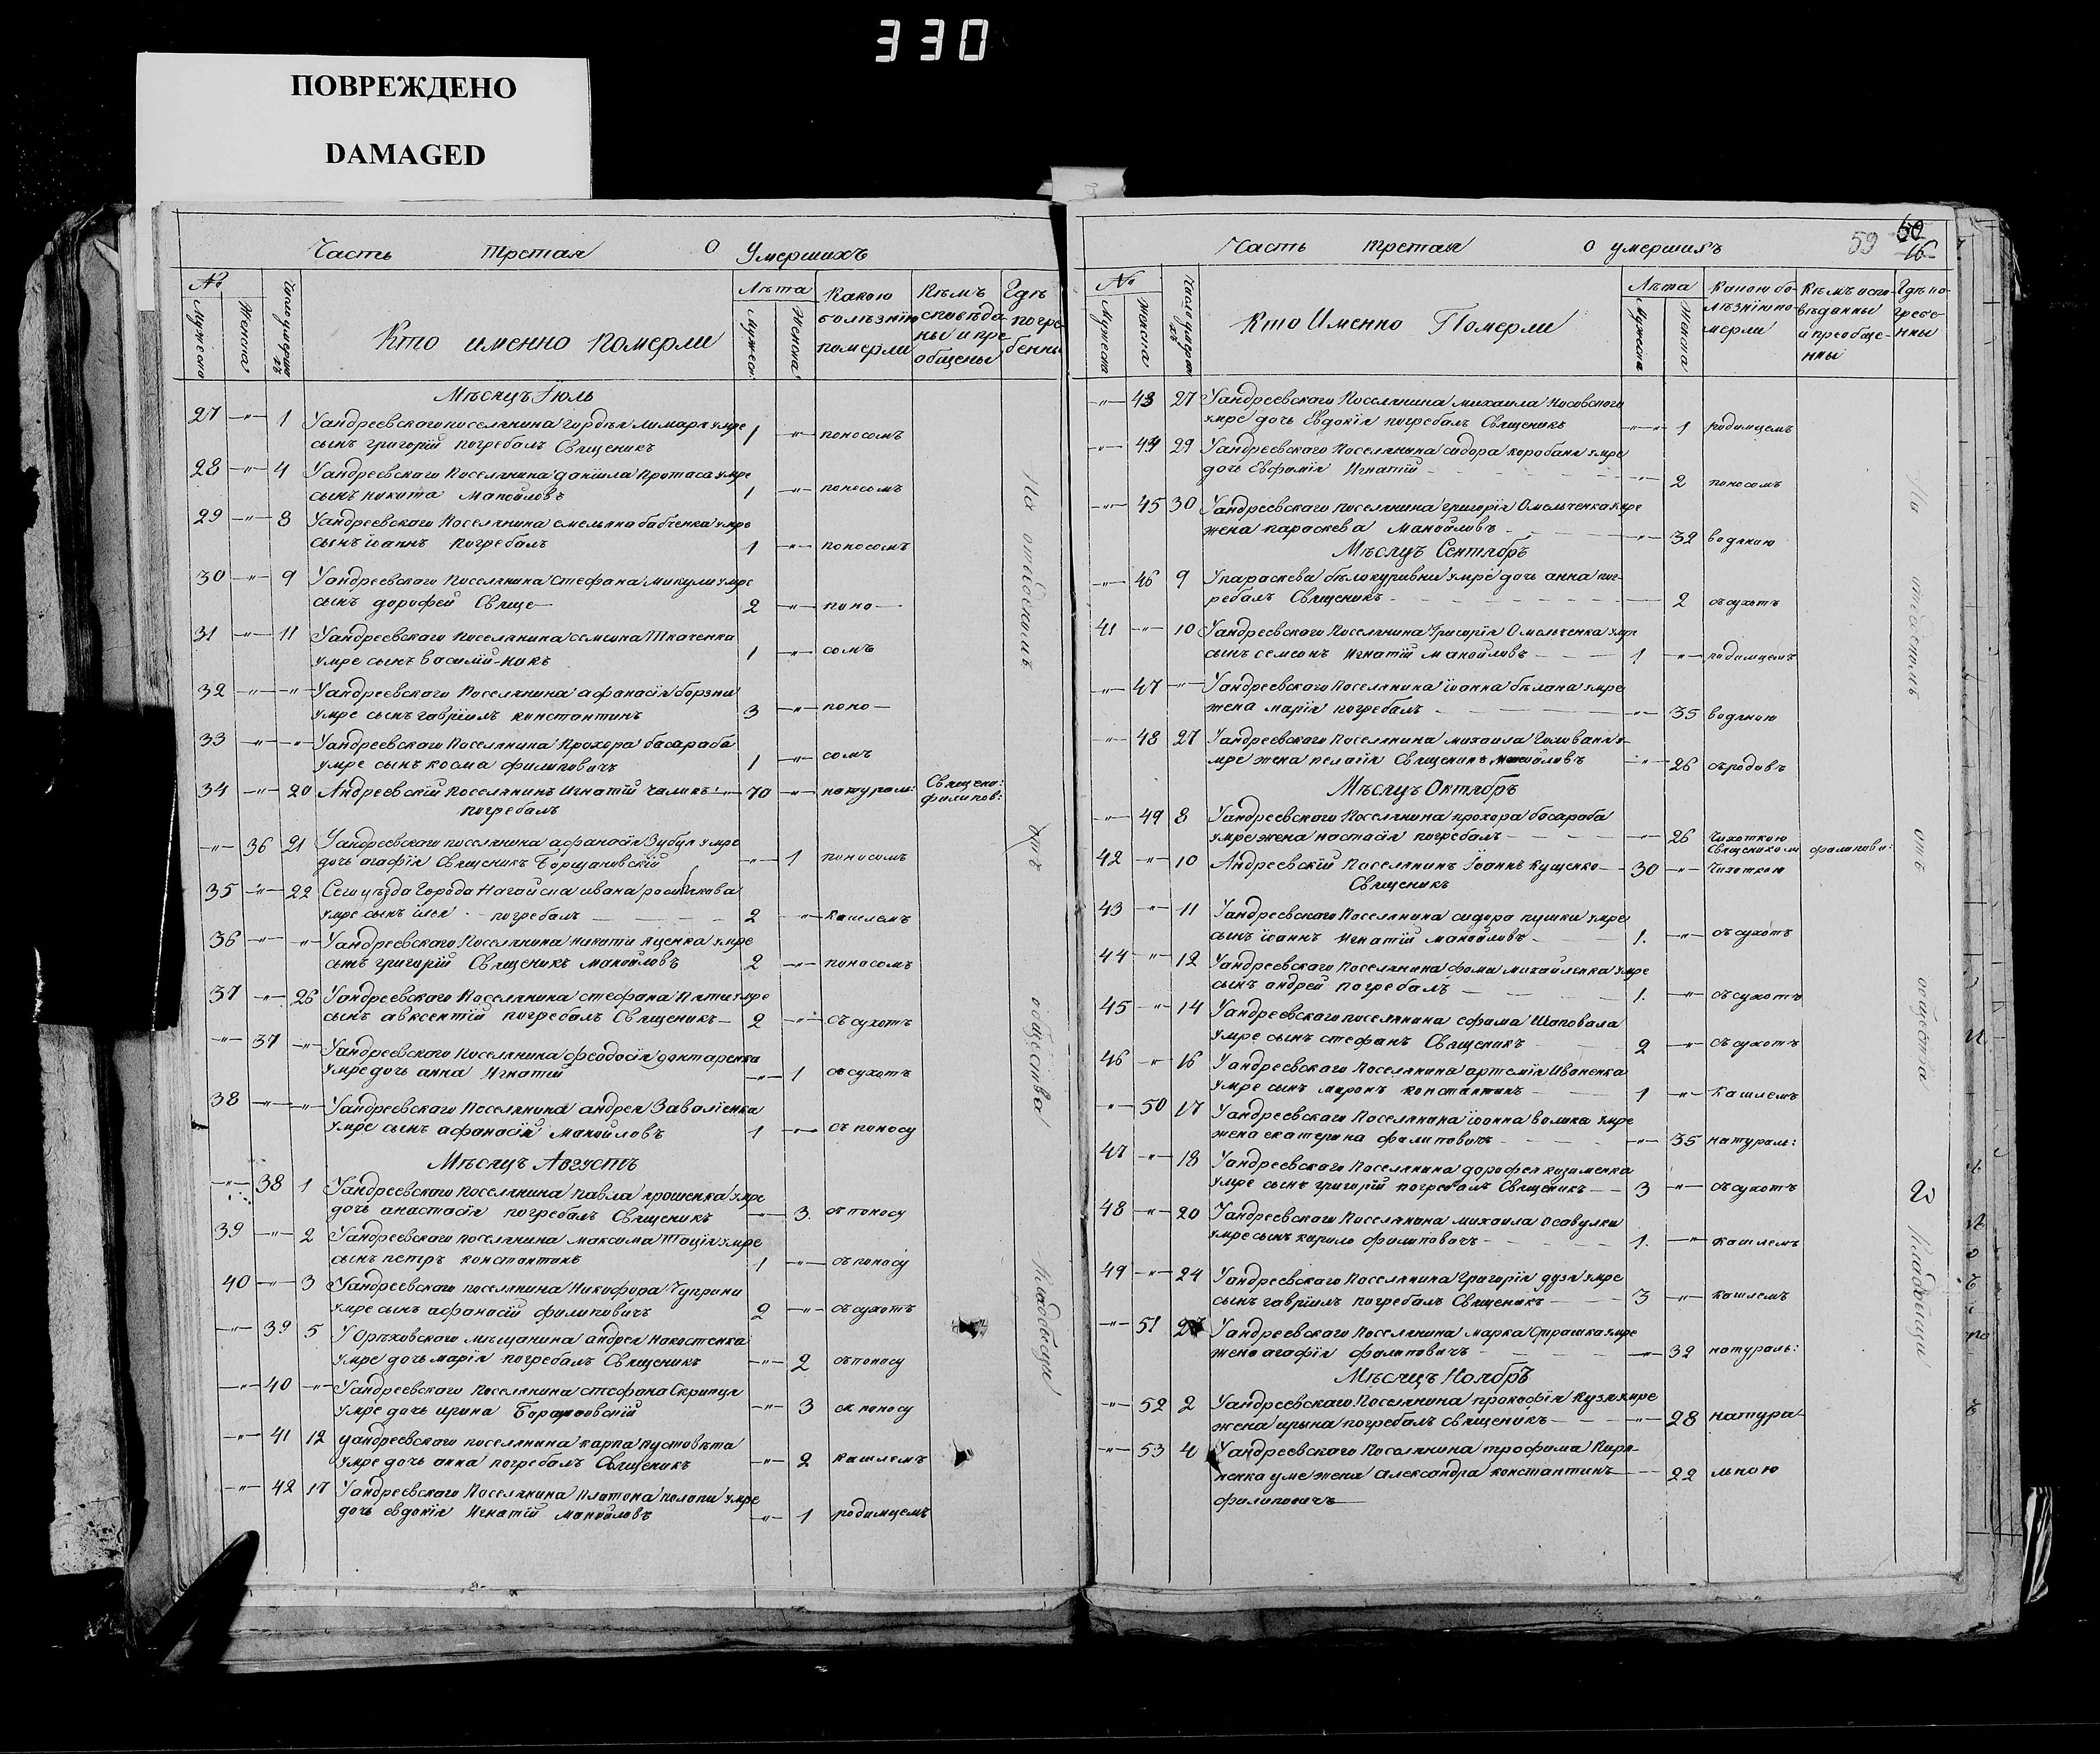 330
ПОВРЕЖДЕНО
DAMAGED
Часть Третая О Умершихъ
№ Мужеска Женска Число умершихъ
Кто именно померли
Лѣта Мужеск: Женска
Какою болѣзнію померли
Кѣмъ исповѣданы и преобщены
Гдѣ погребенны
Мѣсяцъ Іюль
27 -"- 1 Уандреевскаго поселянина гордѣя умре
сынъ григорій погребалъ Священикъ 1 -"- поносомъ
28 -"- 4 Уандреевскаго поселянина даніила Протаса умре
сынъ никита Манойловъ 1 -"- поносомъ
29 -"- 8 Уандреевскаго поселянина емельяна бабченка умре
сынъ іоаннъ погребалъ 1 -"- поносомъ
30 -"- 9 Уандреевскаго поселянина Стефана Микули умре
сынъ дорофей Свяще- 2 -"- поно-
31 -"- 11 Уандреевскаго поселянина семена Ткаченка
умре сынъ василій -никъ 1 -"- сомъ
32 -"- -"- Уандреевскаго поселянина афанасія борзни
умре сынъ гавріилъ константинъ 3 -"- поно-
33 -"- -"- Уандреевскаго поселянина Прохора басараба
умре сынъ косма филиповичъ 1 -"- сомъ
34 -"- 20 Андреевскій поселянинъ Игнатій Чаликъ -"- 70 -"- натурал: Священо: филипов:
погребалъ
-"- 36 21 Уандреевскаго поселянина афанасія Зубца умре
дочь агафія Священикъ Борщановскій -"- 1 поносомъ
35 -"- 22 Сего уѣзда Города Нагайска ивана
умре сынъ илья погребалъ 2 -"- кашлемъ
36 -"- -"- Уандреевскаго поселянина никиты яценка умре
сынъ григорій Священикъ манойловъ 2 -"- поносомъ
37 -"- 26 Уандреевскаго поселянина стефана умре
сынъ авксентій погребалъ Священикъ 2 -"- съ сухотъ
-"- 37 -"- Уандреевскаго поселянина феодосія дехтаренка
умре дочь анна Игнатій -"- 1 съ сухотъ
38 -"- -"- Уандреевскаго поселянина андрея Заваліенка
умре сынъ афанасій манойловъ 1 -"- съ поносу
Мѣсяцъ Августъ
-"- 38 1 Уандреевскаго поселянина павла ярошенка умре
дочь анастасія погребалъ Священикъ -"- 3. съ поносу
39 -"- 2 Уандреевскаго поселянина максима Тація умре
сынъ петръ константинъ 1 -"- съ поносу
40 -"- 3 Уандреевскаго поселянина Никифора Чуприни
умре сынъ афанасій филиповичъ 2 -"- съ сухотъ
-"- 39 5 У Орѣховскаго мѣщанина андрея накостенка
умре дочь марія погребалъ Священикъ -"- 2 съ поносу
-"- 40 -"- Уандреевскаго поселянина стефана Скрипця
умре дочь ирина -"- 3 съ поносу
-"- 41 12 уандреевскаго поселянина карпа пустовѣта
умре дочь анна погребалъ Священикъ -"- 2 кашлемъ
-"- 42 17 Уандреевскаго поселянина платона умре
дочь евдокія Игнатій манойловъ -"- 1 родимцемъ
На отведенномъ отъ общества кладбищи
Часть третая О умершихъ 59 60 16
№ Мужеска Женска Число умершихъ
Кто Именно Померли
Лѣта Мужеска Женска
Какою болѣзнію померли
Кѣмъ исповѣданны и преобщенны
Гдѣ погребенны
-"- 43 27 Уандреевскаго поселянина михаила Носовскаго
умре дочь Евдокія погребалъ Священикъ -"- 1 родимцемъ
-"- 44 29 Уандреевскаго поселянина сидора коробани умре
дочь Евфимія Игнатій -"- 2 поносомъ
-"- 45 30 Уандреевскаго поселянина григорія Омельченка умре
жена параскева Манойловъ -"- 32 водяною
Мѣсяцъ Сентябръ
-"- 46 9 У параскева бѣлокуривни умре дочь анна пог-
ребалъ Священикъ 2 съ сухотъ
41 -"- 10 Уандреевскаго поселянина Григорія Омельченка умре
сынъ семеонъ Игнатій манойловъ 1 -"- родимцемъ
-"- 47 -"- Уандреевскаго поселянина іоанна бѣлана умре
жена марія погребалъ -"- 35 водяною
-"- 48 27 Уандреевскаго поселянина михаила Голованя у-
мре жена пелагія Священикъ манойловъ -"- 26 съ родовъ
Мѣсяцъ Октябръ
-"- 49 8 Уандреевскаго поселянина прохора басараба
умре жена настасія погребалъ -"- 26 Чихоткою
42 -"- 10 Андреевскій поселянинъ Іоаннъ Кущенко 30 -"- Чихоткою Священиком филипови:
Священикъ
43 -"- 11 Уандреевскаго поселянина сидора пушки умре
сынъ іоаннъ Игнатій манойловъ 1. -"- съ сухотъ
44 -"- 12 Уандреевскаго поселянина фомы михайленка умре
сынъ андрей погребалъ 1. -"- съ сухотъ
45 -"- 14 Уандреевскаго поселянина ефима Шаповала
умре сынъ стефанъ Священикъ 2 -"- съ сухотъ
46 -"- 16 Уандреевскаго поселянина артемія Иваненка
умре сынъ миронъ константинъ 1 -"- кашлемъ
-"- 50 17 Уандреевскаго поселянина іоанна волика умре
жена екатерина филиповичъ -"- 35 натураль:
47 -"- 18 Уандреевскаго поселянина дорофея кузменка
умре сынъ григорій погребалъ Священикъ 3 -"- съ сухотъ
48 -"- 20 Уандреевскаго поселянина михаила осавулки
умре сынъ кирило филиповичъ 1. -"- кашлемъ
49 -"- 24 Уандреевскаго поселянина Григорія дузя умре
сынъ гавріилъ погребалъ Священикъ 3 -"- кашлемъ
-"- 51 27 Уандреевскаго поселянина марка Страшка умре
жена агафія филиповичъ -"- 32 натураль:
Мѣсяцъ Ноябръ
-"- 52 2 Уандреевскаго поселянина прокофія кузя умре
жена ирына погребалъ священикъ -"- 28 натура-
-"- 53 4 Уандреевскаго поселянина трофима Кири-
ленка уме жена александра константинъ 22 льною
филиповичъ
На отведеномъ отъ общества кладбищи